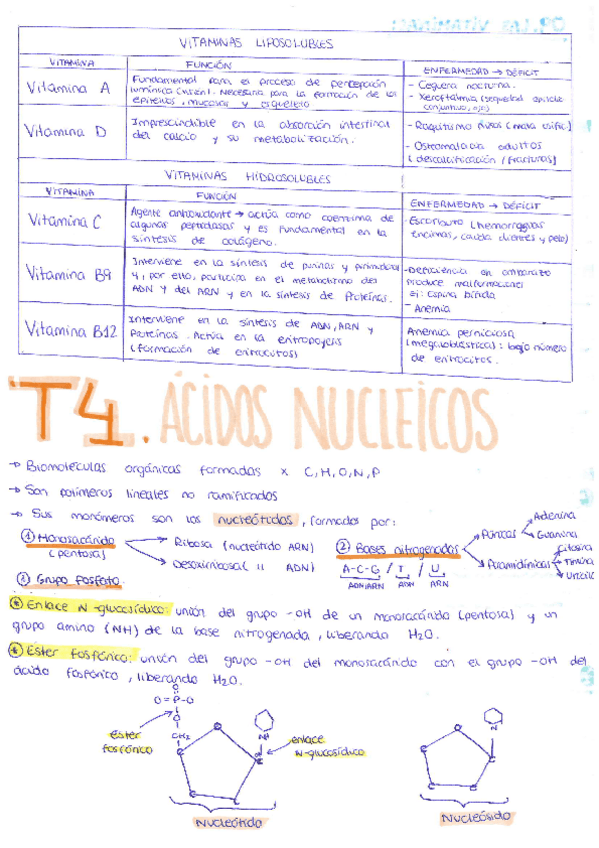 VITAMINAS LIPOSOLUBLES
VITAMINA
FUNCIÓN
ENFERMEDAD → DÉFICIT
Vitamina A
Fundamental para el proceso de percepción
lumínica (visión). Necesaria para la formación de los
epitelios, mucosas y esqueleto
- Ceguera nocturna.
- Xeroftalmia (sequedad
conjuntiva, ojo)
Vitamina D
Imprescindible en la absorción intestinal
del calcio y su metabolización.
- Raquitismo niños (mala osific.)
- Osteomalacia adultos
(descalcificación / fracturas)
VITAMINAS HIDROSOLUBLES
VITAMINA
FUNCIÓN
ENFERMEDAD → DÉFICIT
Vitamina C
Agente antioxidante → actúa como coenzima de
algunas peptidasas y es fundamental en la
síntesis de colágeno.
- Escorbuto (hemorragias
encimas, caída dientes y pelo)
Vitamina B9
Interviene en la síntesis de purinas y pirimidinas
y, por ello, participa en el metabolismo del
ADN y del ARN y en la síntesis de Proteínas.
- Deficiencia en embarazo
produce malformaciones
ej: Espina bífida
- Anemia
Vitamina B12
Interviene en la síntesis de ADN, ARN y
Proteínas. Actúa en la eritropoyesis
(formación de eritrocitos)
Anemia perniciosa
(megaloblástica): bajo número
de eritrocitos.
T4. ÁCIDOS NUCLEICOS
→ Biomoléculas orgánicas formadas x C, H, O, N, P
→ Son polímeros lineales no ramificados
→ Sus monómeros son los nucleótidos, formados por:
① Monosacárido
(pentosa)
Ribosa (nucleótido ARN)
Desoxirribosa ( " ADN)
② Bases nitrogenadas
A-C-G / T / U
ADN/ARN ADN ARN
Púricas
Adenina
Guanina
Piramidínicas
Citosina
Timina
Uracilo
③ Grupo fosfato.
* Enlace N-glucosídico: unión del grupo -OH de un monosacárido (pentosa) y un
grupo amino (NH) de la base nitrogenada, liberando H2O.
* Ester fosfónico: unión del grupo -OH del monosacárido con el grupo -OH del
ácido fosfónico, liberando H2O.
O
O=P-O
O
CH2
Ester
fosfónico
N
enlace
N-glucosídico
Nucleótido
N
Nucleósido